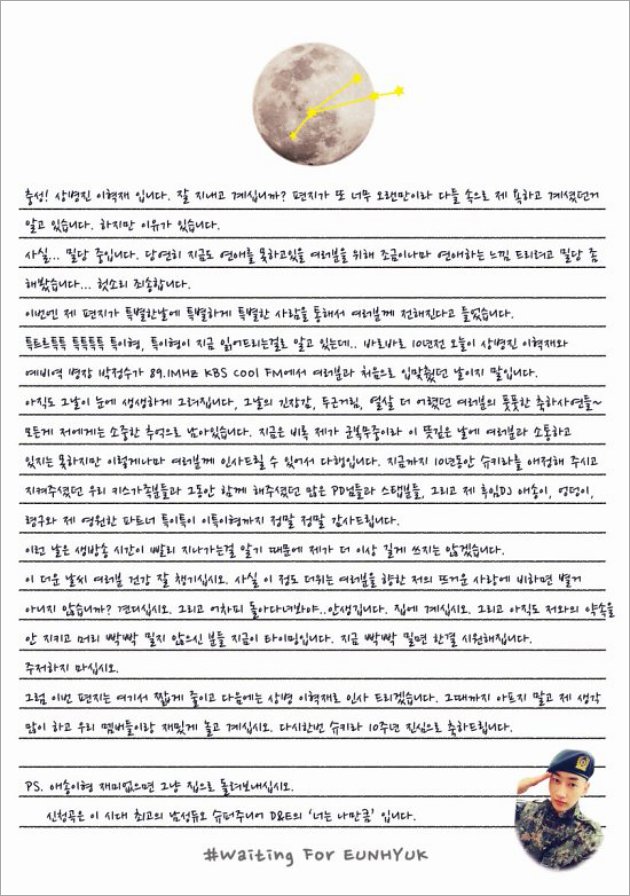 충성! 상병진 이혁재 입니다. 잘 지내고 계십니까? 편지가 또 너무 오랜만이라 다들 속으로 제 욕하고 계셨던거
알고 있습니다. 하지만 이유가 있습니다.
사실... 밀당 중입니다. 당연히 지금도 연애를 못하고있을 여러분을 위해 조금이나마 연애하는 느낌 드리려고 밀당 좀
해봤습니다... 헛소리 죄송합니다.
이번엔 제 편지가 특별한날에 특별하게 특별한 사람을 통해서 여러분께 전해진다고 들었습니다.
특트르특특 특특특특 특이형, 특이형이 지금 읽어드리는걸로 알고 있는데.. 바로바로 10년전 오늘이 상병진 이혁재와
예비역 병장 박정수가 89.1MHz KBS Cool FM에서 여러분과 처음으로 입맞췄던 날이지 말입니다.
아직도 그날이 눈에 생생하게 그려집니다, 그날의 긴장감, 두근거림, 열살 더 어렸던 여러분의 풋풋한 축하사연들~
모든게 저에게는 소중한 추억으로 남아있습니다. 지금은 비록 제가 군복무중이라 이 뜻깊은 날에 여러분과 소통하고
있지는 못하지만 이렇게나마 여러분께 인사드릴 수 있어서 다행입니다. 지금까지 10년동안 슈키라를 애정해 주시고
지켜주셨던 우리 키스가족분들과 그동안 함께 해주셨던 많은 PD님들과 스탭분들, 그리고 제 후임DJ 애송이, 엉덩이,
령구와 제 영원한 파트너 특이특이 이특이형까지 정말 정말 감사드립니다.
이런 날은 생방송 시간이 빨리 지나가는걸 알기 때문에 제가 더 이상 길게 쓰지는 않겠습니다.
이 더운 날씨 여러분 건강 잘 챙기십시오. 사실 이 정도 더위는 여러분을 향한 저의 뜨거운 사랑에 비하면 별거
아니지 않습니까? 견디십시오. 그리고 어차피 돌아다녀봐야..안생깁니다. 집에 계십시오. 그리고 아직도 저와의 약속을
안 지키고 머리 빡빡 밀지 않으신 분들 지금이 타이밍입니다. 지금 빡빡 밀면 한결 시원해집니다.
주저하지 마십시오.
그럼 이번 편지는 여기서 짧게 줄이고 다음에는 상병 이혁재로 인사 드리겠습니다. 그때까지 아프지 말고 제 생각
많이 하고 우리 멤버들이랑 재밌게 놀고 계십시오. 다시한번 슈키라 10주년 진심으로 축하드립니다.
PS. 애송이형 재미없으면 그냥 집으로 돌려보내십시오.
신청곡은 이 시대 최고의 남성듀오 슈퍼주니어 D&E의 '너는 나만큼' 입니다.
#Waiting For EUNHYUK